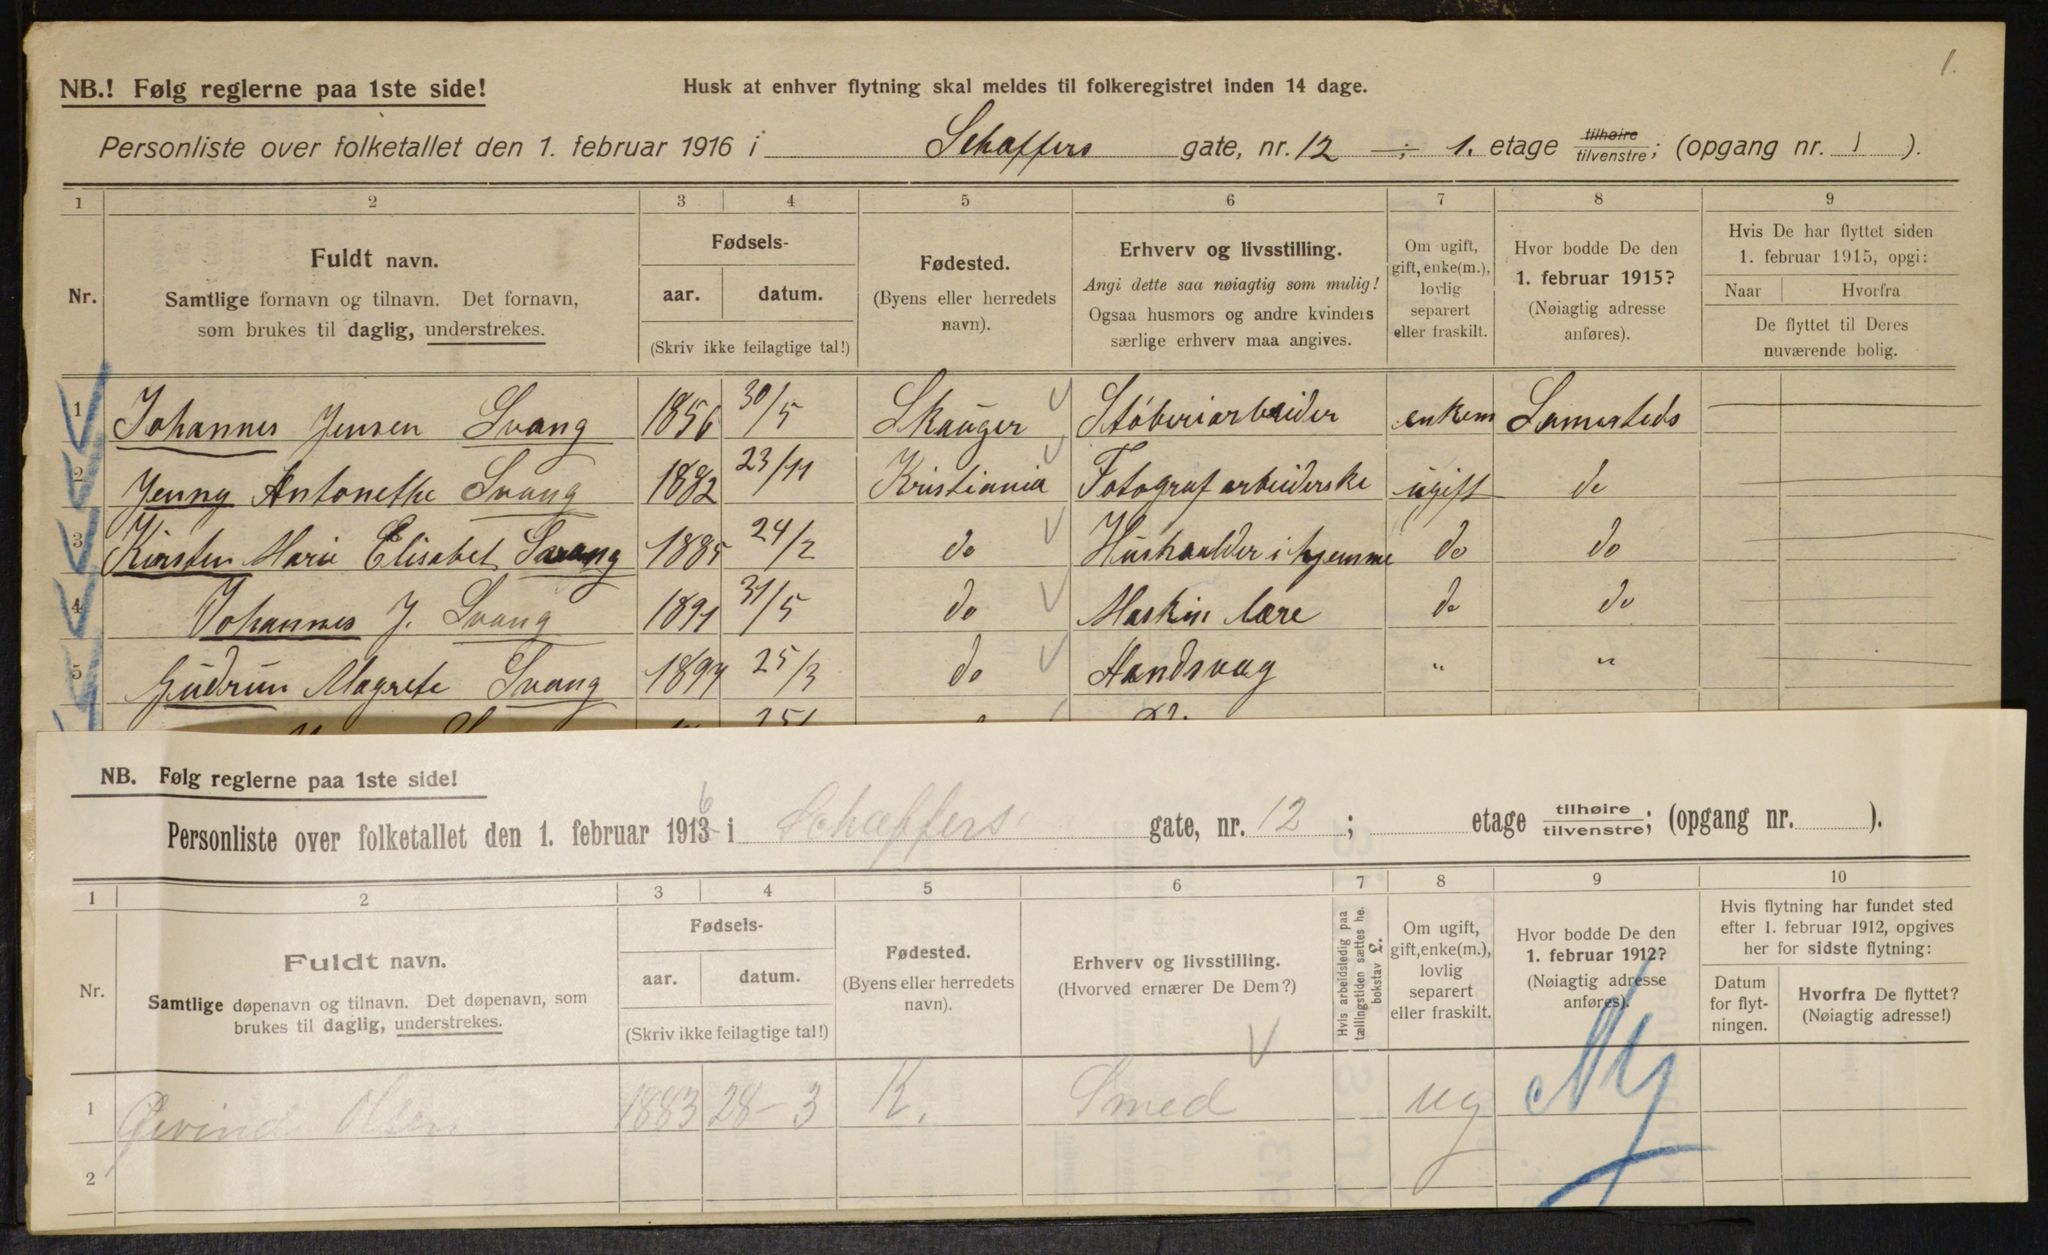 1.
NB.! Følg reglerne paa 1ste side!
Husk at enhver flytning skal meldes til folkeregistret inden 14 dage.
Personliste over folketallet den 1. februar 1916 i Schaffers gate, nr. 12 ; 1. etage tilhøire tilvenstre; (opgang nr. 1 ).
1 2 3 4 5 6 7 8 9
Nr.
Fuldt navn.
Samtlige fornavn og tilnavn. Det fornavn,
som brukes til daglig, understrekes.
Fødsels-
aar. datum.
(Skriv ikke feilagtige tal!)
Fødested.
(Byens eller herredets
navn).
Erhverv og livsstilling.
Angi dette saa nøiagtig som mulig!
Ogsaa husmors og andre kvinders
særlige erhverv maa angives.
Om ugift,
gift, enke(m.),
lovlig
separert
eller fraskilt.
Hvor bodde De den
1. februar 1915?
(Nøiagtig adresse
anføres).
Hvis De har flyttet siden
1. februar 1915, opgi:
Naar Hvorfra
De flyttet til Deres
nuværende bolig.
1 Johannes Jensen Svang 1856 30/5 Skauger Støberiarbeider enkem Samesteds
2 Jenny Antonethe Svang 1882 23/11 Kristiania Fotografarbeiderske ugift do
3 Kirsten Marie Elisabet Svang 1885 24/2 do Husholder i hjemme do do
4 Johannes J. Svang 1891 31/5 do Maskin lære do do
5 Gudrun Magrete Svang 1897 25/3 do Handsvag " "
NB. Følg reglerne paa 1ste side!
Personliste over folketallet den 1. februar 1913 6 i Schaffers gate, nr. 12 ; etage tilhøire tilvenstre; (opgang nr. ).
1 2 3 4 5 6 7 8 9 10
Nr.
Fuldt navn.
Samtlige døpenavn og tilnavn. Det døpenavn, som
brukes til daglig, understrekes.
Fødsels-
aar. datum.
(Skriv ikke feilagtige tal!)
Fødested.
(Byens eller herredets
navn).
Erhverv og livsstilling.
(Hvorved ernærer De Dem?)
Hvis arbeidsledig paa
tællingstiden sættes he.
bokstav L.
Om ugift,
gift, enke(m.),
lovlig
separert
eller fraskilt.
Hvor bodde De den
1. februar 1912?
(Nøiagtig adresse
anføres).
Hvis flytning har fundet sted
efter 1. februar 1912, opgives
her for sidste flytning:
Datum
for flyt-
ningen.
Hvorfra De flyttet?
(Nøiagtig adresse!)
1 Øivind Olsen 1883 28-3 K. Smed ug
Ny
2